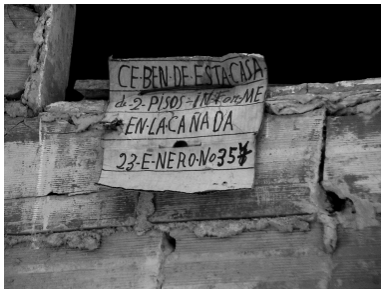 CE BEN-DE-ESTA CASA
de-2-PISOS-INForME
EN-LACAÑADA
23-E-NERO-No35